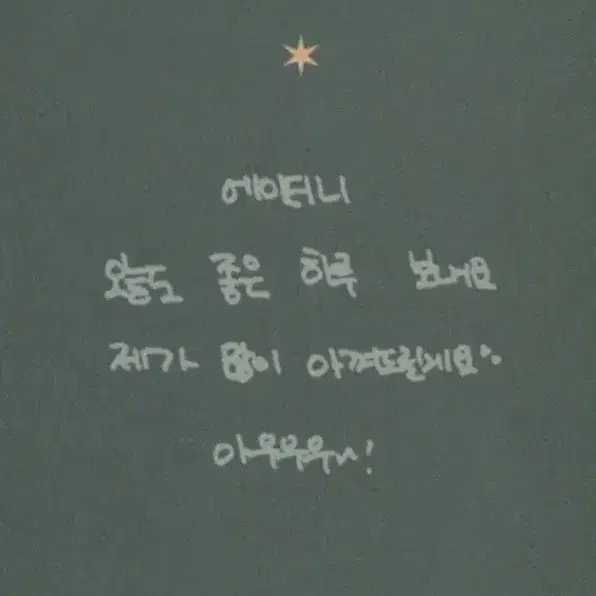 에이터니
오늘도 좋은 하루 보내요
제가 많이 아껴드릴게요^^
아우우우~!